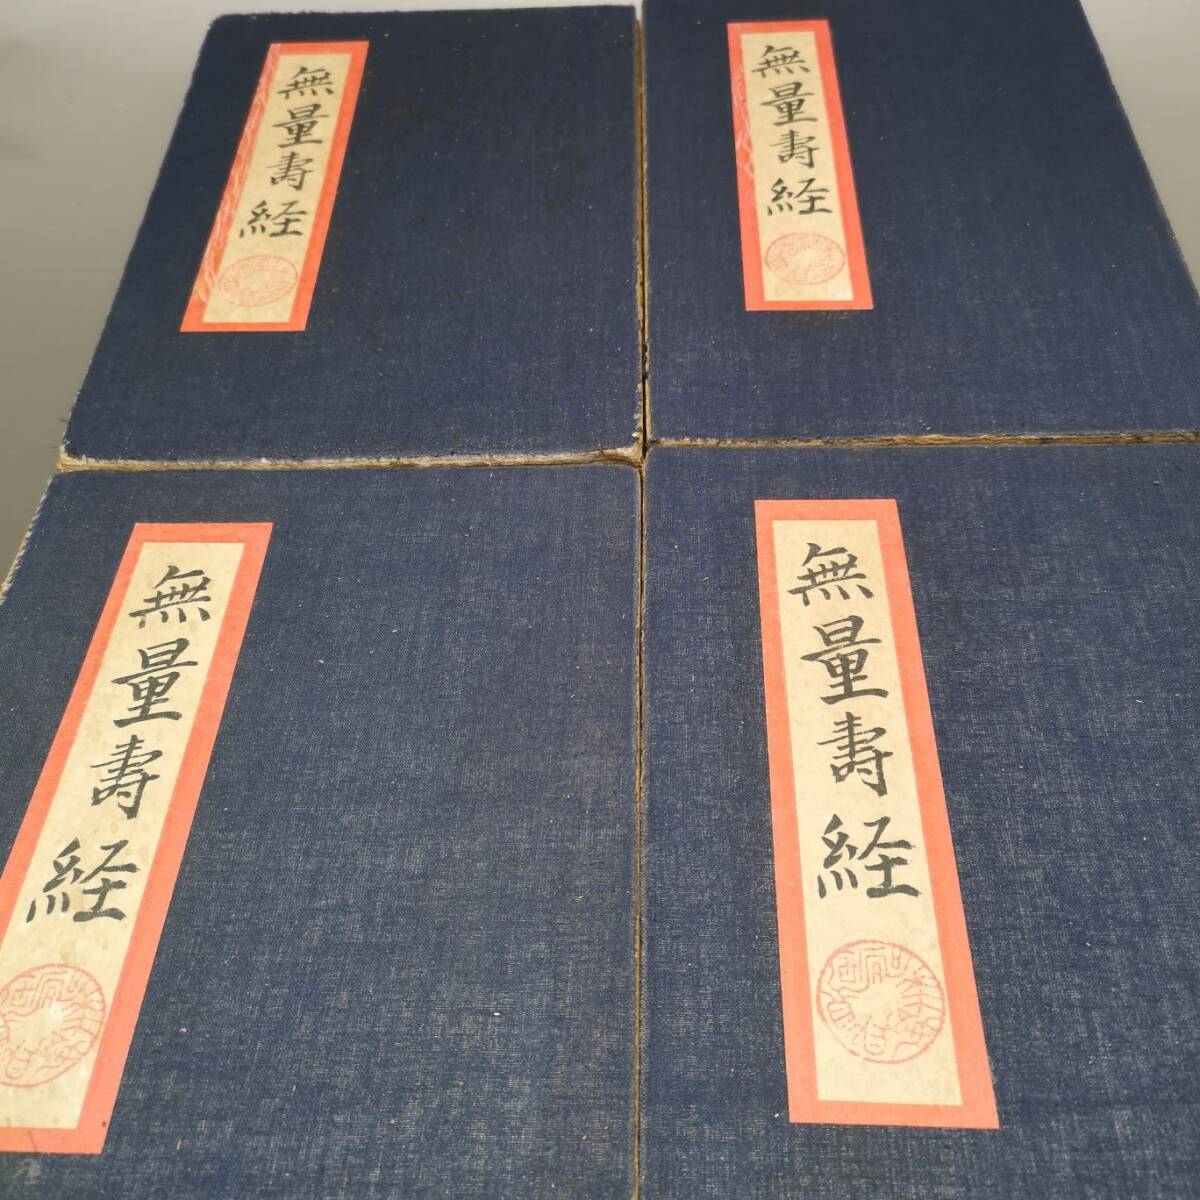 無量寿経
無量寿経
無量寿経
無量寿経